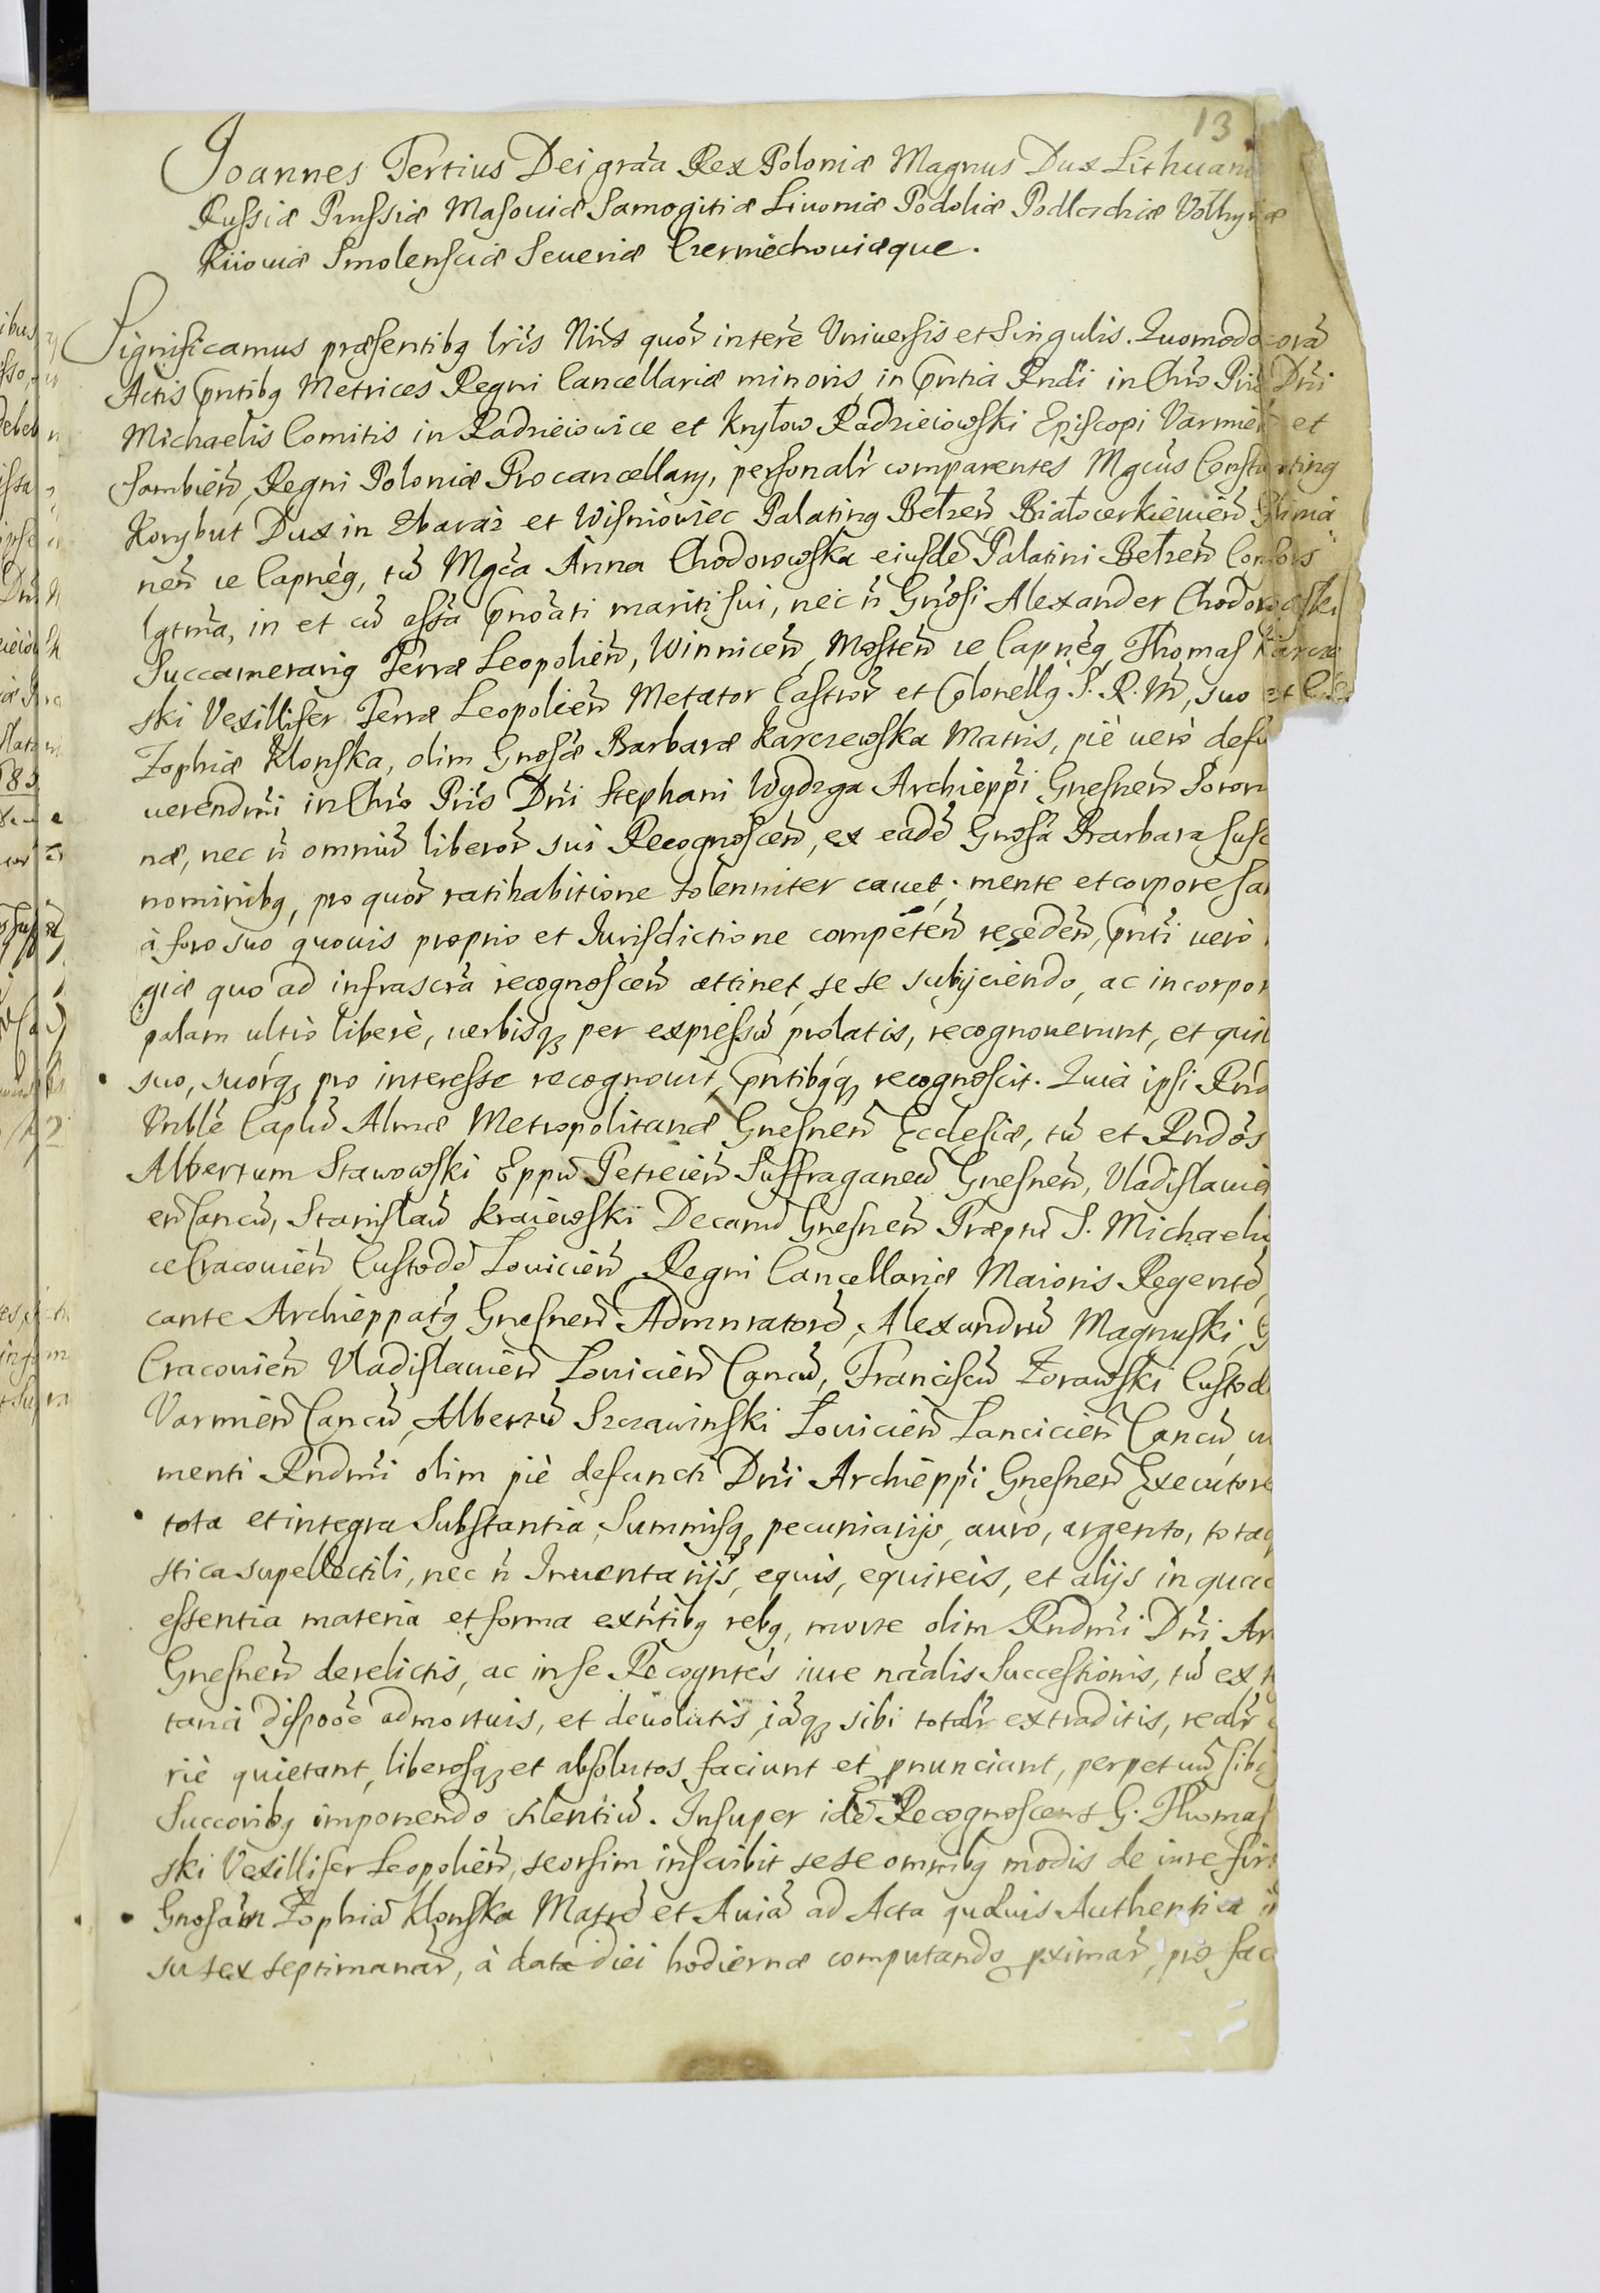 13
Joannes Tertius Dei grãa Rex Poloniæ Magnus Dux Lithuani
Russiæ Prussiæ Masouiæ Samogitiæ Liuoniæ Podoliæ Podlachiæ Volhyniæ
Kiiouiæ Smolensciæ Seueriæ Czerniechouiæque.
Significamus præsentibq lrĩs Nrĩs quoȓ interẽ Vniuersis et Singulis. Quomodo corã
Actis p̃ntibq Metrices Regni Cancellariæ minoris, in p̃ntia Rndĩ in Chrõ Pris Dnĩ
Michaelis Comitis in Radzieiowice et Kryłow Radzieiowski Episcopi Varmien̄ et
Sambien̄, Regni Poloniæ Procancellarij, personalȓ comparentes Mgcus Constantinq
Korybut Dux in Zbaraż et Wisniowiec Palatinq Bełzen̄ Białocerkieuien̄
nen̄ ȩ Capneq, tũ Mgca Anna Chodorowska eiusdẽ Palatini Bełzen̄ Consors
lgtma, in et cũ assã p̃noãti mariti sui, nec ñ Gnosi Alexander Chodorowski
Succamerariq Terræ Leopolien̄, Winnicen̄, Mosten̄ ȩ Capneq, Thomas Karcze
ski Vexillifer Terræ Leopolien̄ Metator Castroȓ et Colonellq S. R. M., suo et
Zophiæ Klonska, olim Gnosæ Barbaræ Karczewska Matris, piè uerò defu
uerendmĩ in Chrõ Pris Dnĩ Stephani Wydzga Archieppĩ Gnesnen̄ Soror
næ, nec ñ omniũ liberoȓ sui Recognoscen̄, ex eadẽ Gnosa Barbara susc
nominibq, pro quoȓ ratihabitione solenniter cauet; mente et corpore san
à foro suo quouis proprio et Jurisdictione competen̄ receden̄, p̃nti uerò
giæ quo ad infrascrã recognoscen̄ attinet, sese subijciendo, ac incorpor
palam ultrò liberè, uerbisq; per expressũ prolatis, recognouerunt, et qui
suo, suorq; pro interesse recognouit, p̃ntibqq; recognoscit. Quia ipsi Rnd
Vnblẽ Caplũ Almæ Metropolitanæ Gnesnen̄ Ecclesiæ, tũ et Rndos
Albertum Stawowski Eppũ Petreien̄ Suffraganeũ Gnesnen̄, Vladislauie
en̄ Cancũ, Stanislaũ Kraiewski Decanũ Gnesnen̄ Præptũ S. Michaeli
ce Cracouien̄ Custodẽ Louicien̄ Regni Cancellariæ Maioris Regentẽ,
cante Archieppatq Gnesnen̄ Admnratorẽ, Alexandrũ Magnuski, G
Cracouien̄ Vladislauien̄ Louicien̄ Cancũ, Franciscũ Zorawski Custod
Varmien̄ Cancũ, Albertũ Szczawinski Louicien̄ Lancicien̄ Cancũ, u
menti Rndmĩ olim piè defuncti Dnĩ Archieppĩ Gnesnen̄ Executore
tota et integra Substantia, Summisq; pecuniarijs, auro, argento, totaq
stica supellectili, nec ñ Inuentarijs, equis, equireis, et alijs in quac
essentia materia et forma exñtibq rebq, morte olim Rndmĩ Dnĩ Ar
Gnesnen̄ derelictis, ac in se Recogntes iure nãalis Successionis, tũ ex t
tana dispooẽ admortuis, et deuolutis, iãq; sibi totalȓ extraditis, realȓ
riè quietant, liberosq; et absolutos faciunt et pnunciant, perpetuũ sibi
Succoribq imponendo silentiũ. Insuper idẽ Recognoscens G. Thomas
ski Vexillifer Leopolien̄, seorsim inscribit sese omnibq modis de iure fir
Gnosam Zophiã Klonska Matrẽ et Auiã ad Acta quæuis Authentica i
su sex septimanaȓ, à data diei hodiernæ computando pximaȓ, pro fac